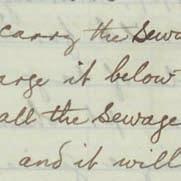 carry the Sewa
arge it below
all the Sewage
and it will